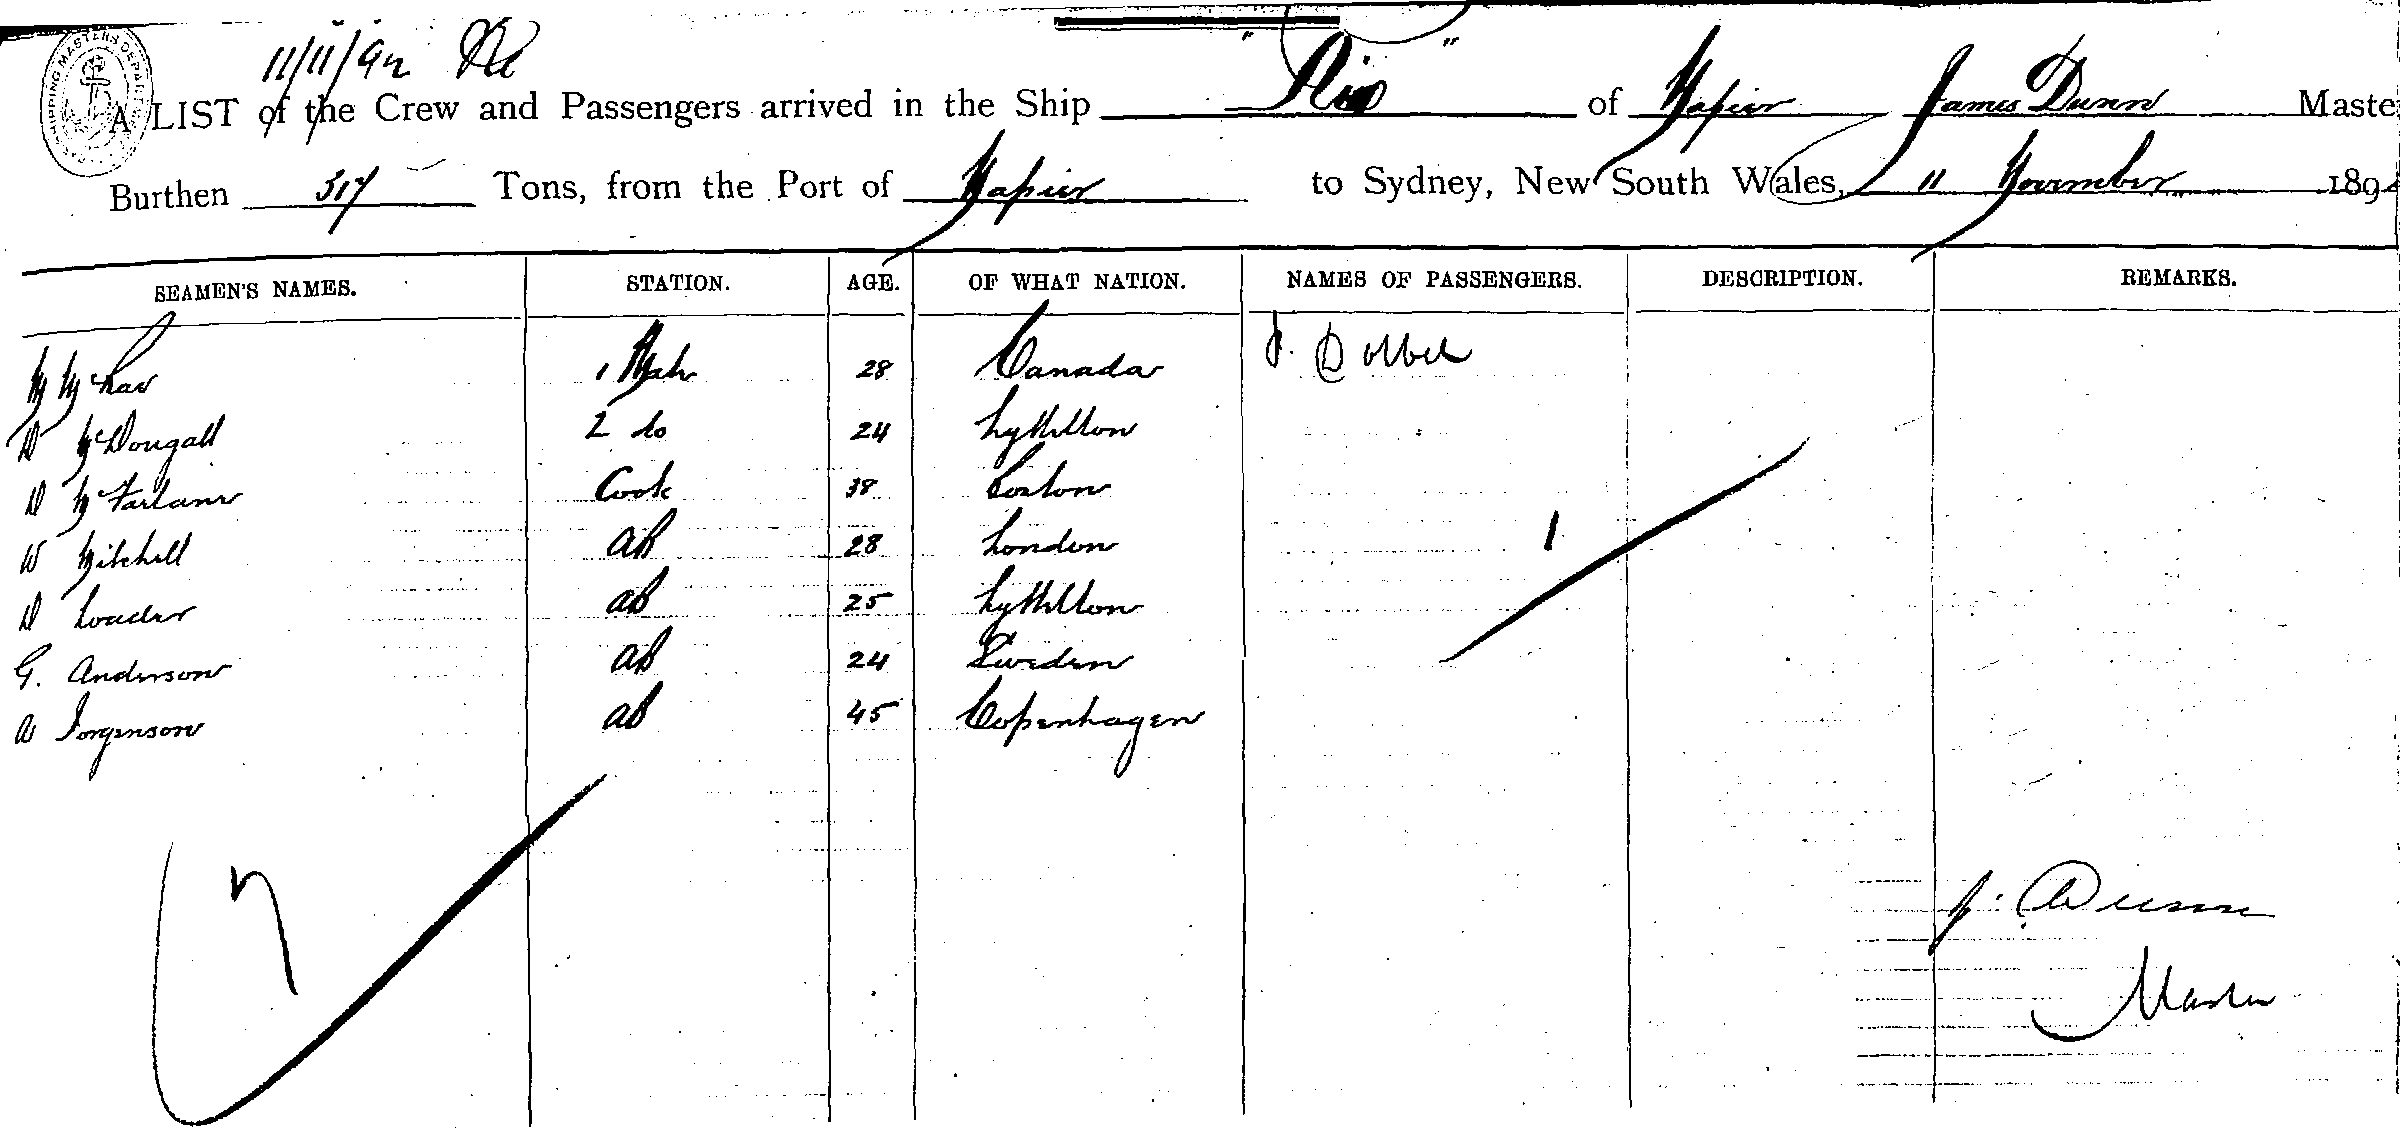 11/11/92
SHIPPING MASTERS DEPARTMENT
A LIST of the Crew and Passengers arrived in the Ship "Rio" of Napier James Dunn Maste
Burthen 317 Tons, from the Port of Napier to Sydney, New South Wales, 11 November 1892
SEAMEN'S NAMES. STATION. AGE. OF WHAT NATION. NAMES OF PASSENGERS. DESCRIPTION. REMARKS.
M McRae 1 Mate 28 Canada J. Dobbel
D McDougall 2 do 24 Lyttelton
D McFarlane Cook 38 Boston
W Mitchell AB 28 London 1
D Loader AB 25 Lyttelton
G. Anderson AB 24 Sweden
A Jorgenson AB 45 Copenhagen
7
J. Dunn
Master